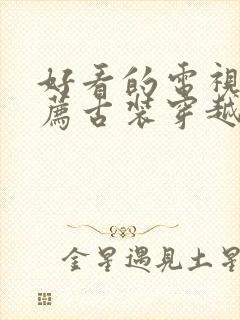 好看的電視
薦古裝穿越
金星遇見土星